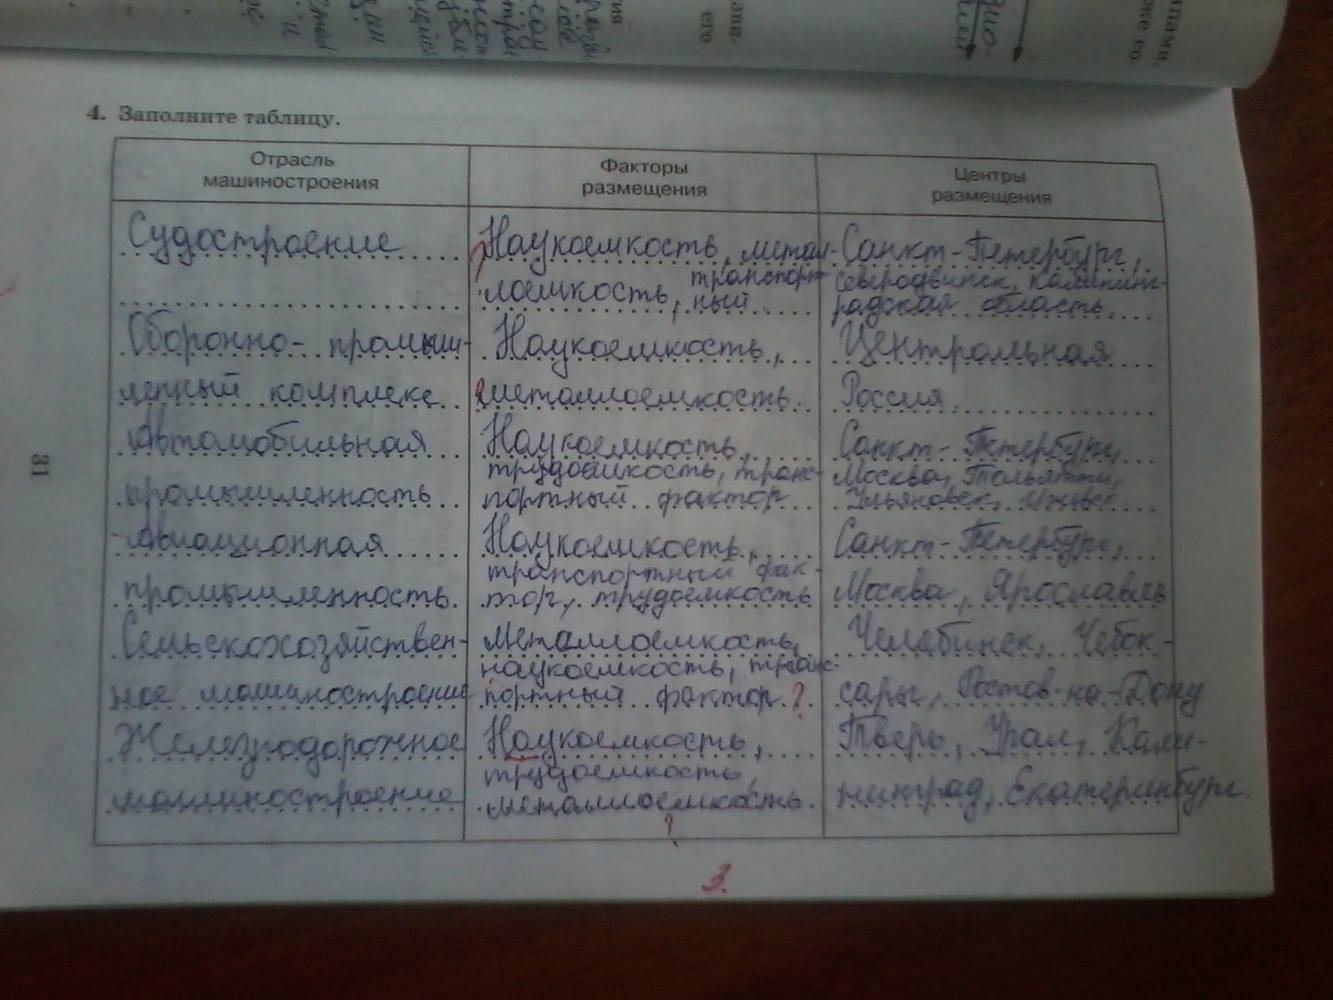 4. Заполните таблицу.
Отрасль
машиностроения
Факторы
размещения
Центры
размещения
Судостроение
Наукоемкость, метал-
лоемкость, транспорт
ный
Санкт-Петербург,
Северодвинск, Калинин-
градская область.
Оборонно-промыш-
ленный комплекс
Наукоемкость,
металлоемкость.
Центральная
Россия.
Автомобильная
промышленность
Наукоемкость,
трудоёмкость, транс-
портный фактор
Санкт-Петербург,
Москва, Тольятти,
Ульяновск, Ижевск
Авиационная
промышленность.
Наукоемкость,
транспортный фак-
тор, трудоемкость
Санкт-Петербург,
Москва, Ярославль
Сельскохозяйствен-
ное машиностроение
Металлоемкость,
наукоемкость, транс-
портный фактор ?
Челябинск, Чебок-
сары, Ростов-на-Дону
Железнодорожное
машиностроение
Наукоемкость,
трудоемкость,
металлоемкость.
?
Тверь, Урал, Кали-
нинград, Екатеринбург.
3.
31